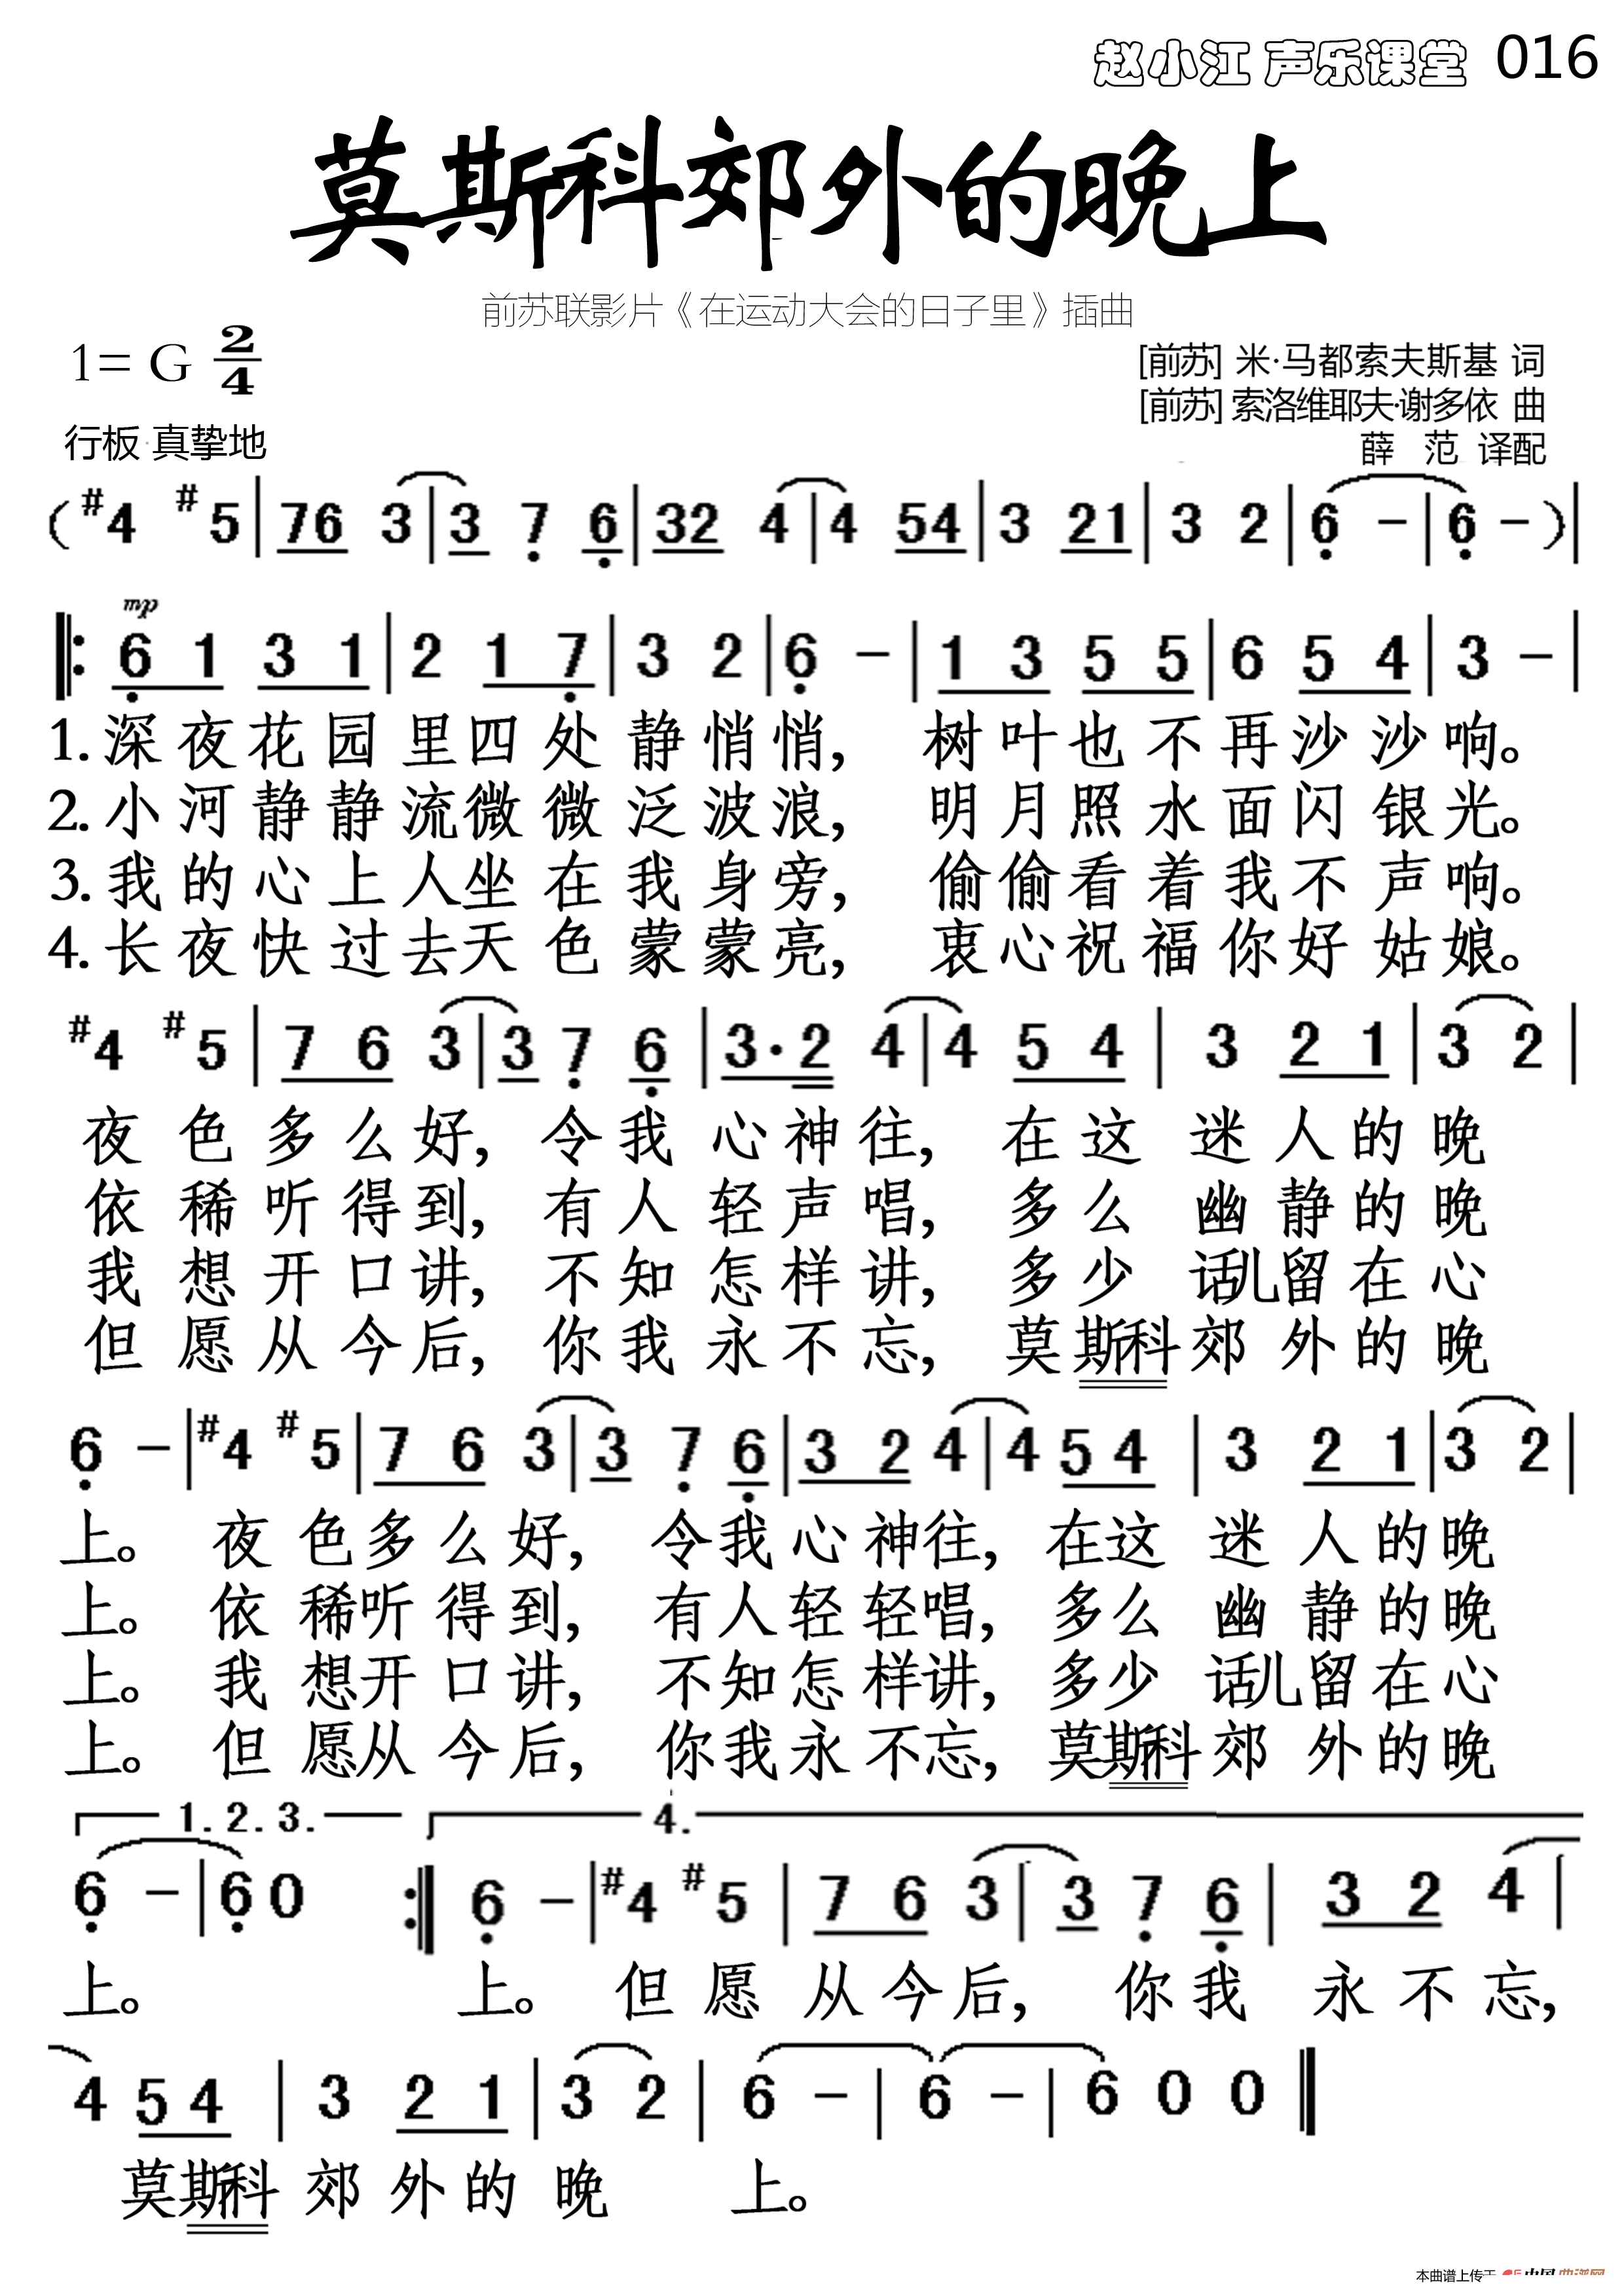 赵小江 声乐课堂 016
莫斯科郊外的晚上
前苏联影片《在运动大会的日子里》插曲
1= G 2/4
[前苏] 米·马都索夫斯基 词
[前苏] 索洛维耶夫·谢多依 曲
行板 真挚地
薛 范 译配
( #4 #5 | 76 3 | 3 7 6 | 32 4 | 4 54 | 3 21 | 3 2 | 6 - | 6 - ) |
mp
‖: 6 1 3 1 | 2 1 7 | 3 2 | 6 - | 1 3 5 5 | 6 5 4 | 3 - |
1. 深夜花园里四处静悄悄, 树叶也不再沙沙响。
2. 小河静静流微微泛波浪, 明月照水面闪银光。
3. 我的心上人坐在我身旁, 偷偷看着我不声响。
4. 长夜快过去天色蒙蒙亮, 衷心祝福你好姑娘。
#4 #5 | 7 6 3 | 3 7 6 | 3· 2 4 | 4 5 4 | 3 2 1 | 3 2 |
夜色多么好, 令我心神往, 在这迷人的晚
依稀听得到, 有人轻声唱, 多么幽静的晚
我想开口讲, 不知怎样讲, 多少话儿留在心
但愿从今后, 你我永不忘, 莫斯科郊外的晚
6 - | #4 #5 | 7 6 3 | 3 7 6 | 3 2 4 | 4 5 4 | 3 2 1 | 3 2 |
上。 夜色多么好, 令我心神往, 在这迷人的晚
上。 依稀听得到, 有人轻轻唱, 多么幽静的晚
上。 我想开口讲, 不知怎样讲, 多少话儿留在心
上。 但愿从今后, 你我永不忘, 莫斯科郊外的晚
1. 2. 3. 4.
6 - | 6 0 :‖ 6 - | #4 #5 | 7 6 3 | 3 7 6 | 3 2 4 |
上。 上。 但愿从今后, 你我永不忘,
4 5 4 | 3 2 1 | 3 2 | 6 - | 6 - | 6 0 0 ‖
莫斯科郊外的晚上。
本曲谱上传于